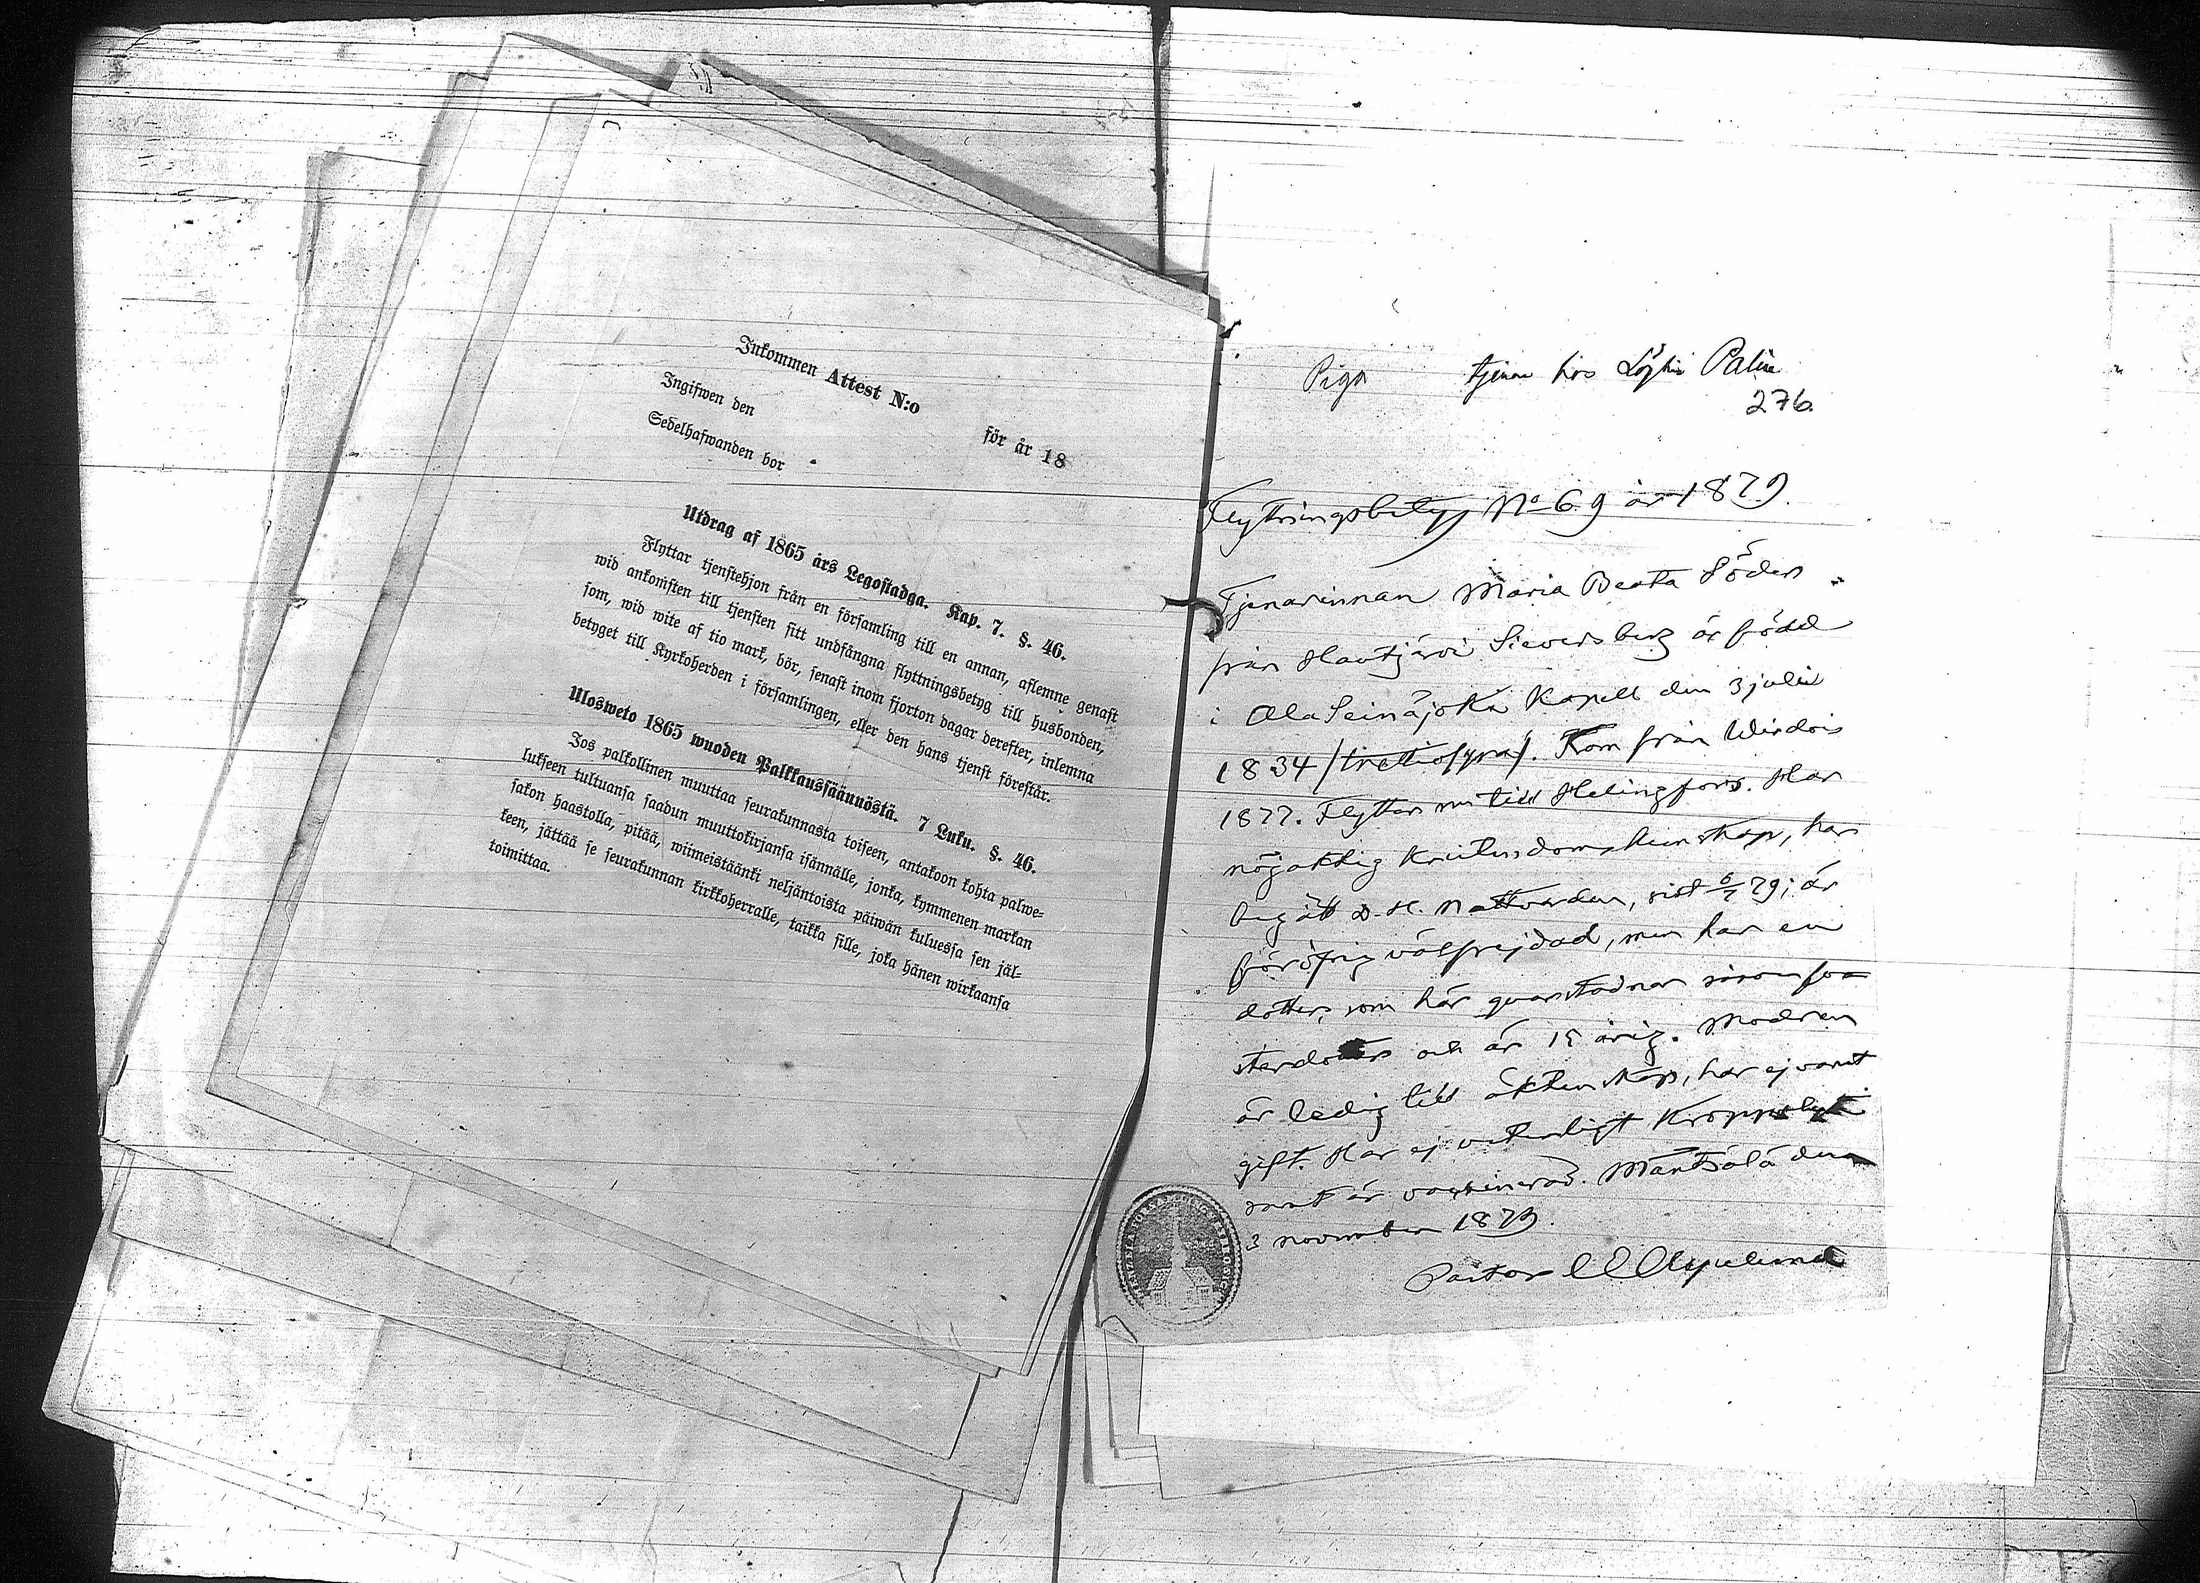 Inkommen Attest N:o
för år 18
Ingifwen den
Sedelhafwanden bor
Utdrag af 1865 års Legostadga. Kap. 7. §. 46.
Flyttar tjenstehjon från en församling till en annan, aflemne genast
wid ankomsten till tjensten sitt undfångna flyttningsbetyg till husbonden,
som, wid wite af tio mark, bör, senast inom fjorton dagar derefter, inlemna
betyget till Kyrkoherden i församlingen, eller den hans tjenst förestår.
Ulosweto 1865 wuoden Palkkaussäännöstä. 7 Luku. §. 46.
Jos palkollinen muuttaa seurakunnasta toiseen, antakoon kohta palwe=
lukseen tultuansa saadun muuttokirjansa isännälle, jonka, kymmenen markan
sakon haastolla, pitää, wiimeistäänki neljäntoista päiwän kuluessa sen jäl=
keen, jättää se seurakunnan kirkkoherralle, taikka sille, joka hänen wirkaansa
toimittaa.
Piga tjenar hos
276.
Flyttningsbetyg No 69 år 1879.
Tjenarinnan Maria Beata Söder
från Hautjärvi Sieversberg är född
i Ala Seinäjoka Kapell den 3 julii
1834 /trettiofyra/. Kom från Wirdois
1877. Flyttar nu till Helsingfors. Har
nöjaktig kristendomskunskap, har
begått D. H. Nattvarden, sist 6/7 79; är
föröfrig välfrejdad, men har en
dotter, som här qvarstadnar såsom fo
sterdotter och är 15 årig. Modren
är ledig till äktenskap, har ej varit
gift. Har ej veterligt Kroppslyte
samt är vaccinerad. Mäntsälä den
3 november 1879.
Pastor